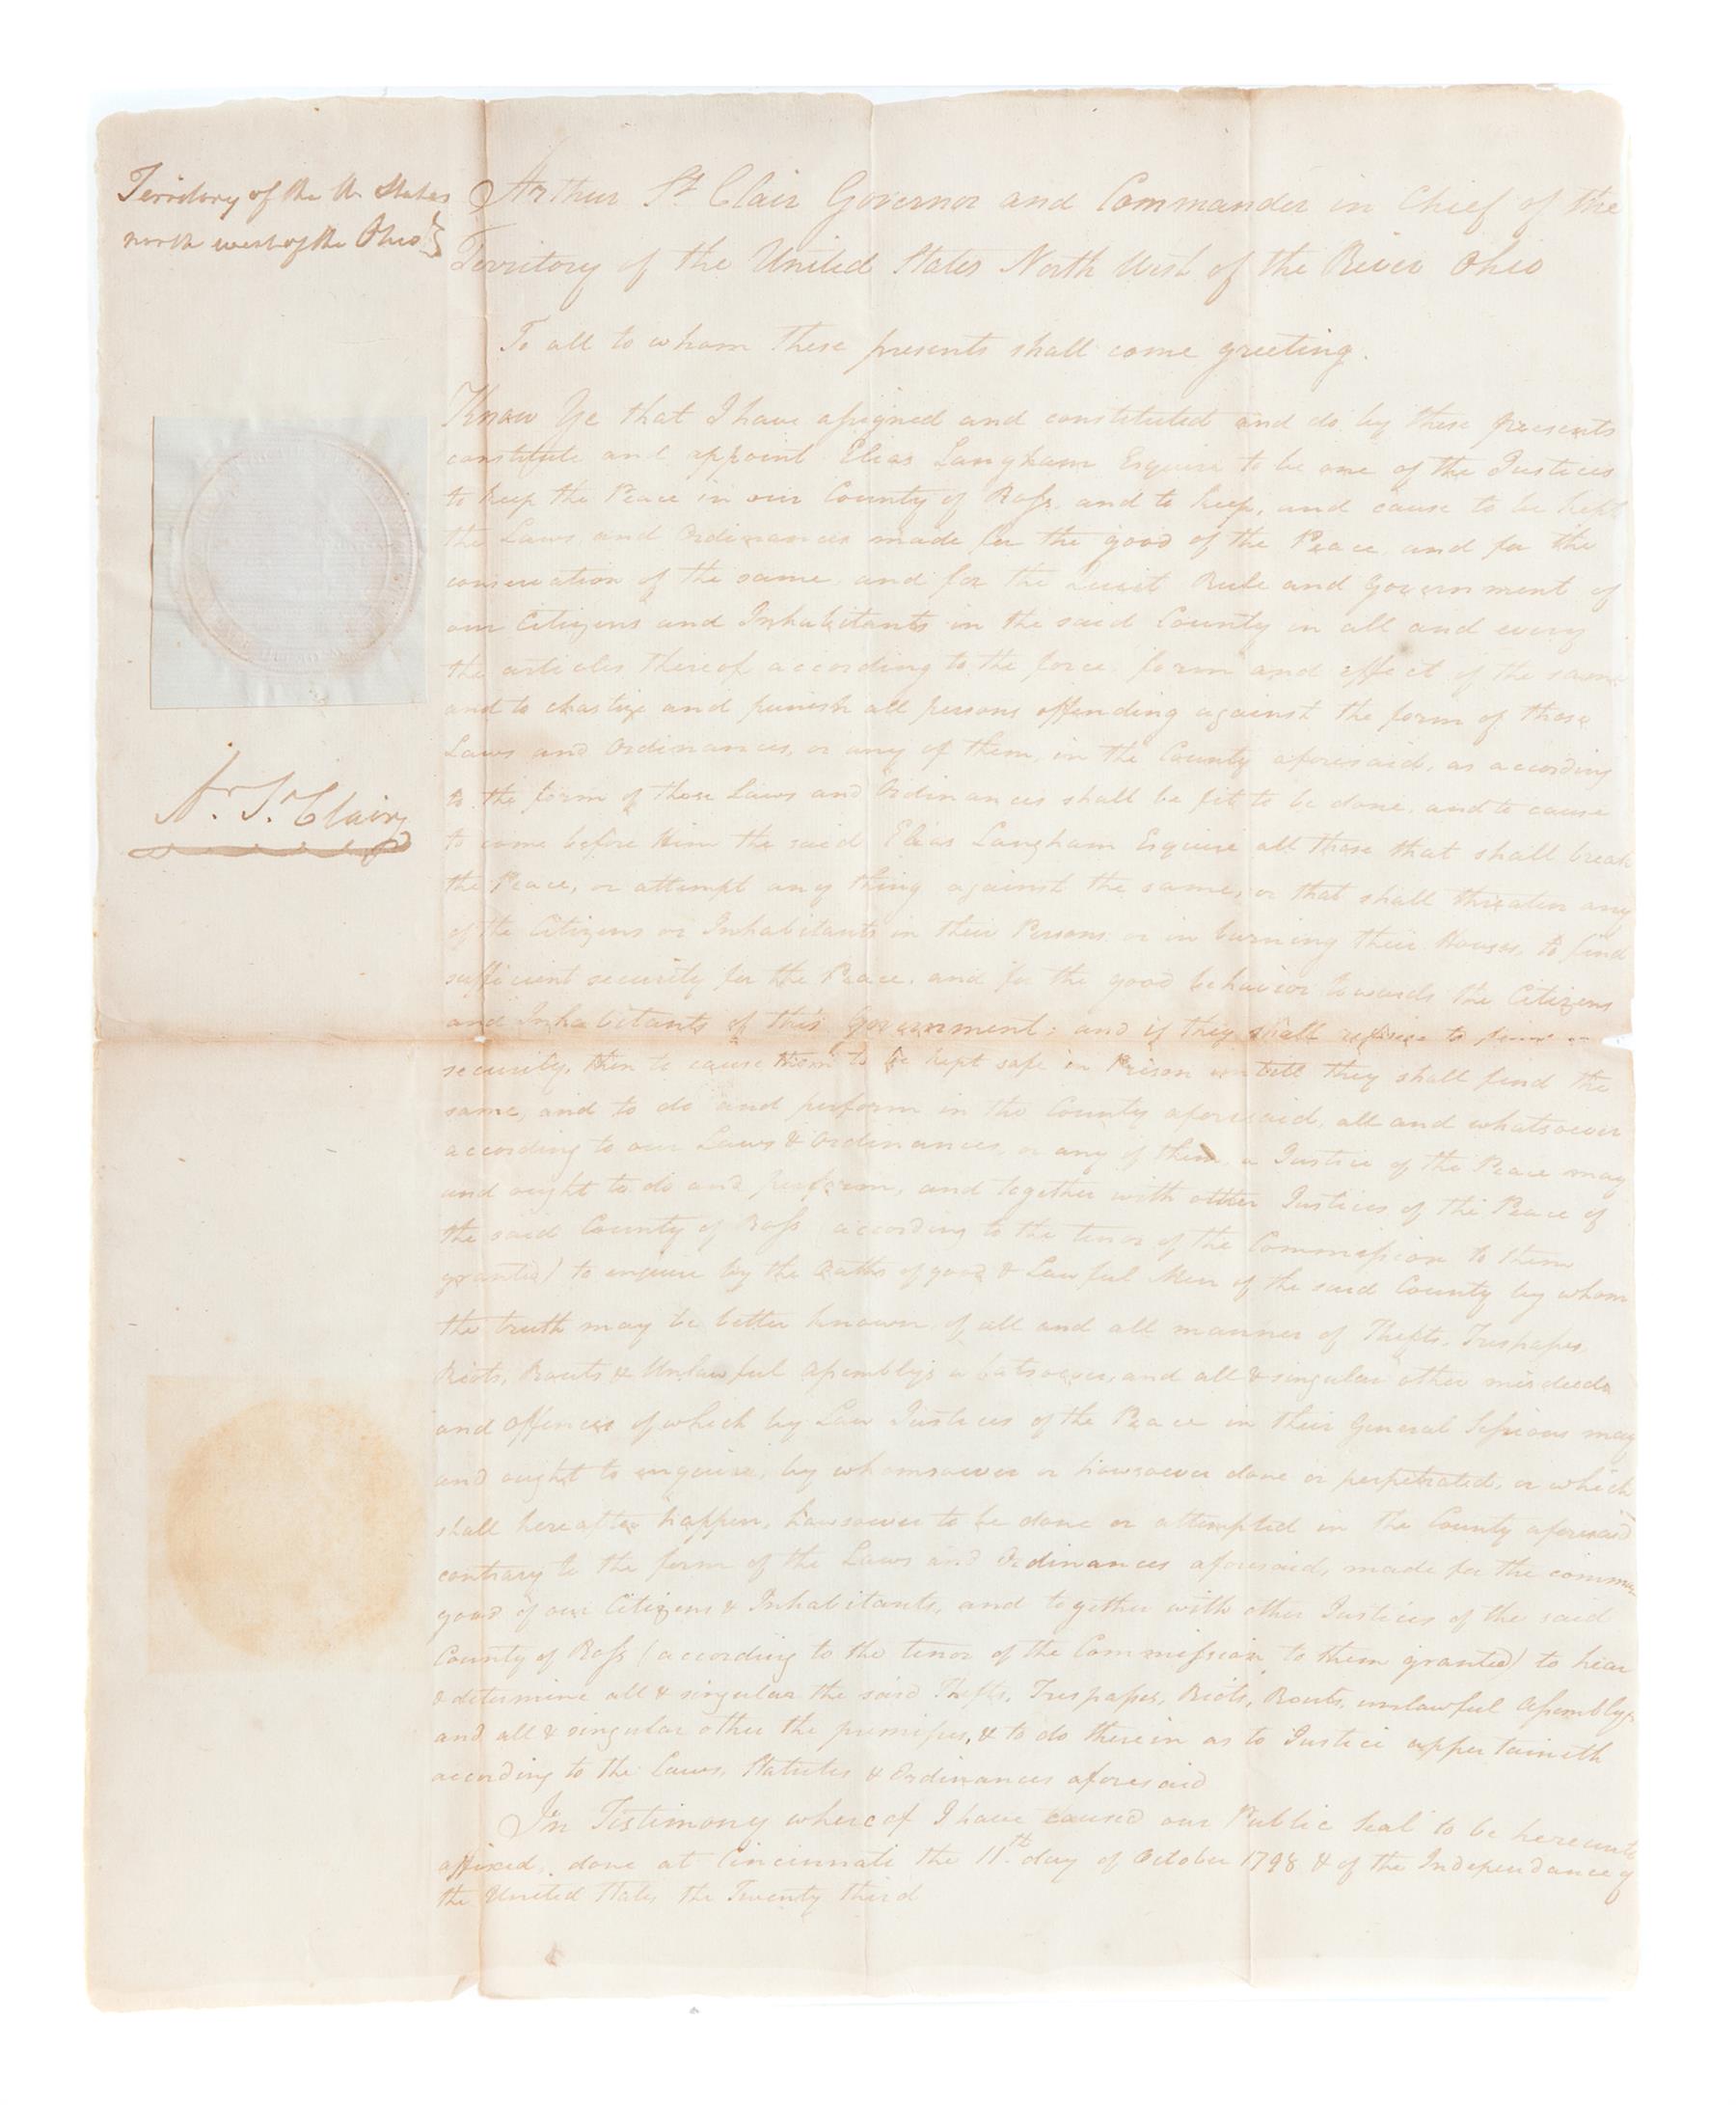 Territory of the U. States
north west of the Ohio
Arthur St Clair Governor and Commander in Chief of the
Territory of the United States North West of the River Ohio
To all to whom these presents shall come greeting.
Know Ye that I have assigned and constituted and do by these presents
constitute and appoint Elias Langham Esquire to be one of the Justices
to keep the Peace in our County of Ross, and to keep, and cause to be kept
the Laws and Ordinances made for the good of the Peace, and for the
conservation of the same, and for the quiet Rule and Government of
our Citizens and Inhabitants in the said County in all and every
the articles thereof according to the force, form and effect of the same
and to chastize and punish all persons offending against the form of those
Laws and Ordinances, or any of them, in the County aforesaid, as according
to the form of those Laws and Ordinances shall be fit to be done, and to cause
to come before Him the said Elias Langham Esquire all those that shall break
the Peace, or attempt any thing against the same, or that shall threaten any
of the Citizens or Inhabitants in their Persons or in burning their Houses, to find
sufficient security for the Peace, and for the good behavior towards the Citizens
and Inhabitants of this Government; and if they shall refuse to find
security, then to cause them to be kept safe in Prison untill they shall find the
same, and to do and perform in the County aforesaid, all and whatsoever
according to our Laws & Ordinances, or any of them, a Justice of the Peace may
and ought to do and perform, and together with other Justices of the Peace of
the said County of Ross (according to the tenor of the Commission to them
granted) to enquire by the Oaths of good & Lawful Men of the said County by whom
the truth may be better known, of all and all manner of Thefts, Trespasses
Riots, Routs & Unlawful Assemblys whatsoever, and all & singular other misdeeds
and offences of which by Law Justices of the Peace in their General Sessions may
and ought to enquire, by whomsoever or howsoever done or perpetrated, or which
shall hereafter happen, howsoever to be done or attempted in the County aforesaid
contrary to the form of the Laws and Ordinances aforesaid, made for the common
good of our Citizens & Inhabitants, and together with other Justices of the said
County of Ross (according to the tenor of the Commission to them granted) to hear
& determine all & singular the said Thefts, Trespasses, Riots, Routs, unlawful Assemblys
and all & singular other the premises, & to do therein as to Justice appertaineth
according to the Laws, Statutes & Ordinances aforesaid
In Testimony whereof I have caused our Public Seal to be hereunto
affixed, done at Cincinnati the 11th day of October 1798 & of the Independance of
the United States the Twenty third
Ar. St. Clair